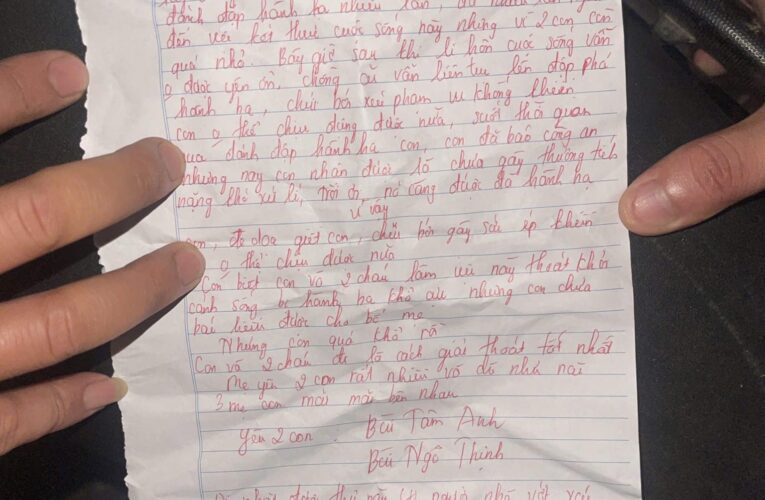 đánh đập hành hạ nhiều lần,
đến với kết thúc cuộc sống này nhưng vì 2 con còn
quá nhỏ. Bây giờ sau khi li hôn cuộc sống vẫn
o được yên ổn, chồng cũ vẫn liên tục đến đập phá
hành hạ, chửi bới xúc phạm vu khống khiến
con o thể chịu đựng được nữa, suốt thời gian
qua đánh đập hành hạ con, con đã báo công an
nhưng nay con nhận được là chưa gây thương tích
nặng khó xử lí, trời ơi, nó càng được đà hành hạ
vì vậy
con, đe doạ giết con, chửi bới gây sức ép khiến
o thể chịu được nữa
Con biết con và 2 cháu làm việc này thoát khỏi
cảnh sống bị hành hạ khổ ải nhưng con chưa
báo hiếu được cho bố mẹ
Nhưng con quá khổ rồi
Con và 2 cháu đi là cách giải thoát tốt nhất
Mẹ yêu 2 con rất nhiều và đó nhé
3 mẹ con mãi mãi bên nhau
Yêu 2 con : Bùi Tâm Anh
Bùi Ngô Thịnh